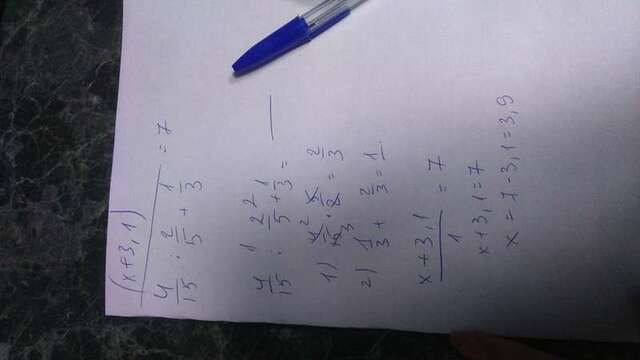 (x+3,1)
4/15 : 2/5 + 1/3 = 7
1 2
4/15 : 2/5 + 1/3 = ___
1) 4/15 · 5/2 = 2/3
2
3
2) 1/3 + 2/3 = 1.
x+3,1/1 = 7
x+3,1=7
x = 7-3,1=3,9